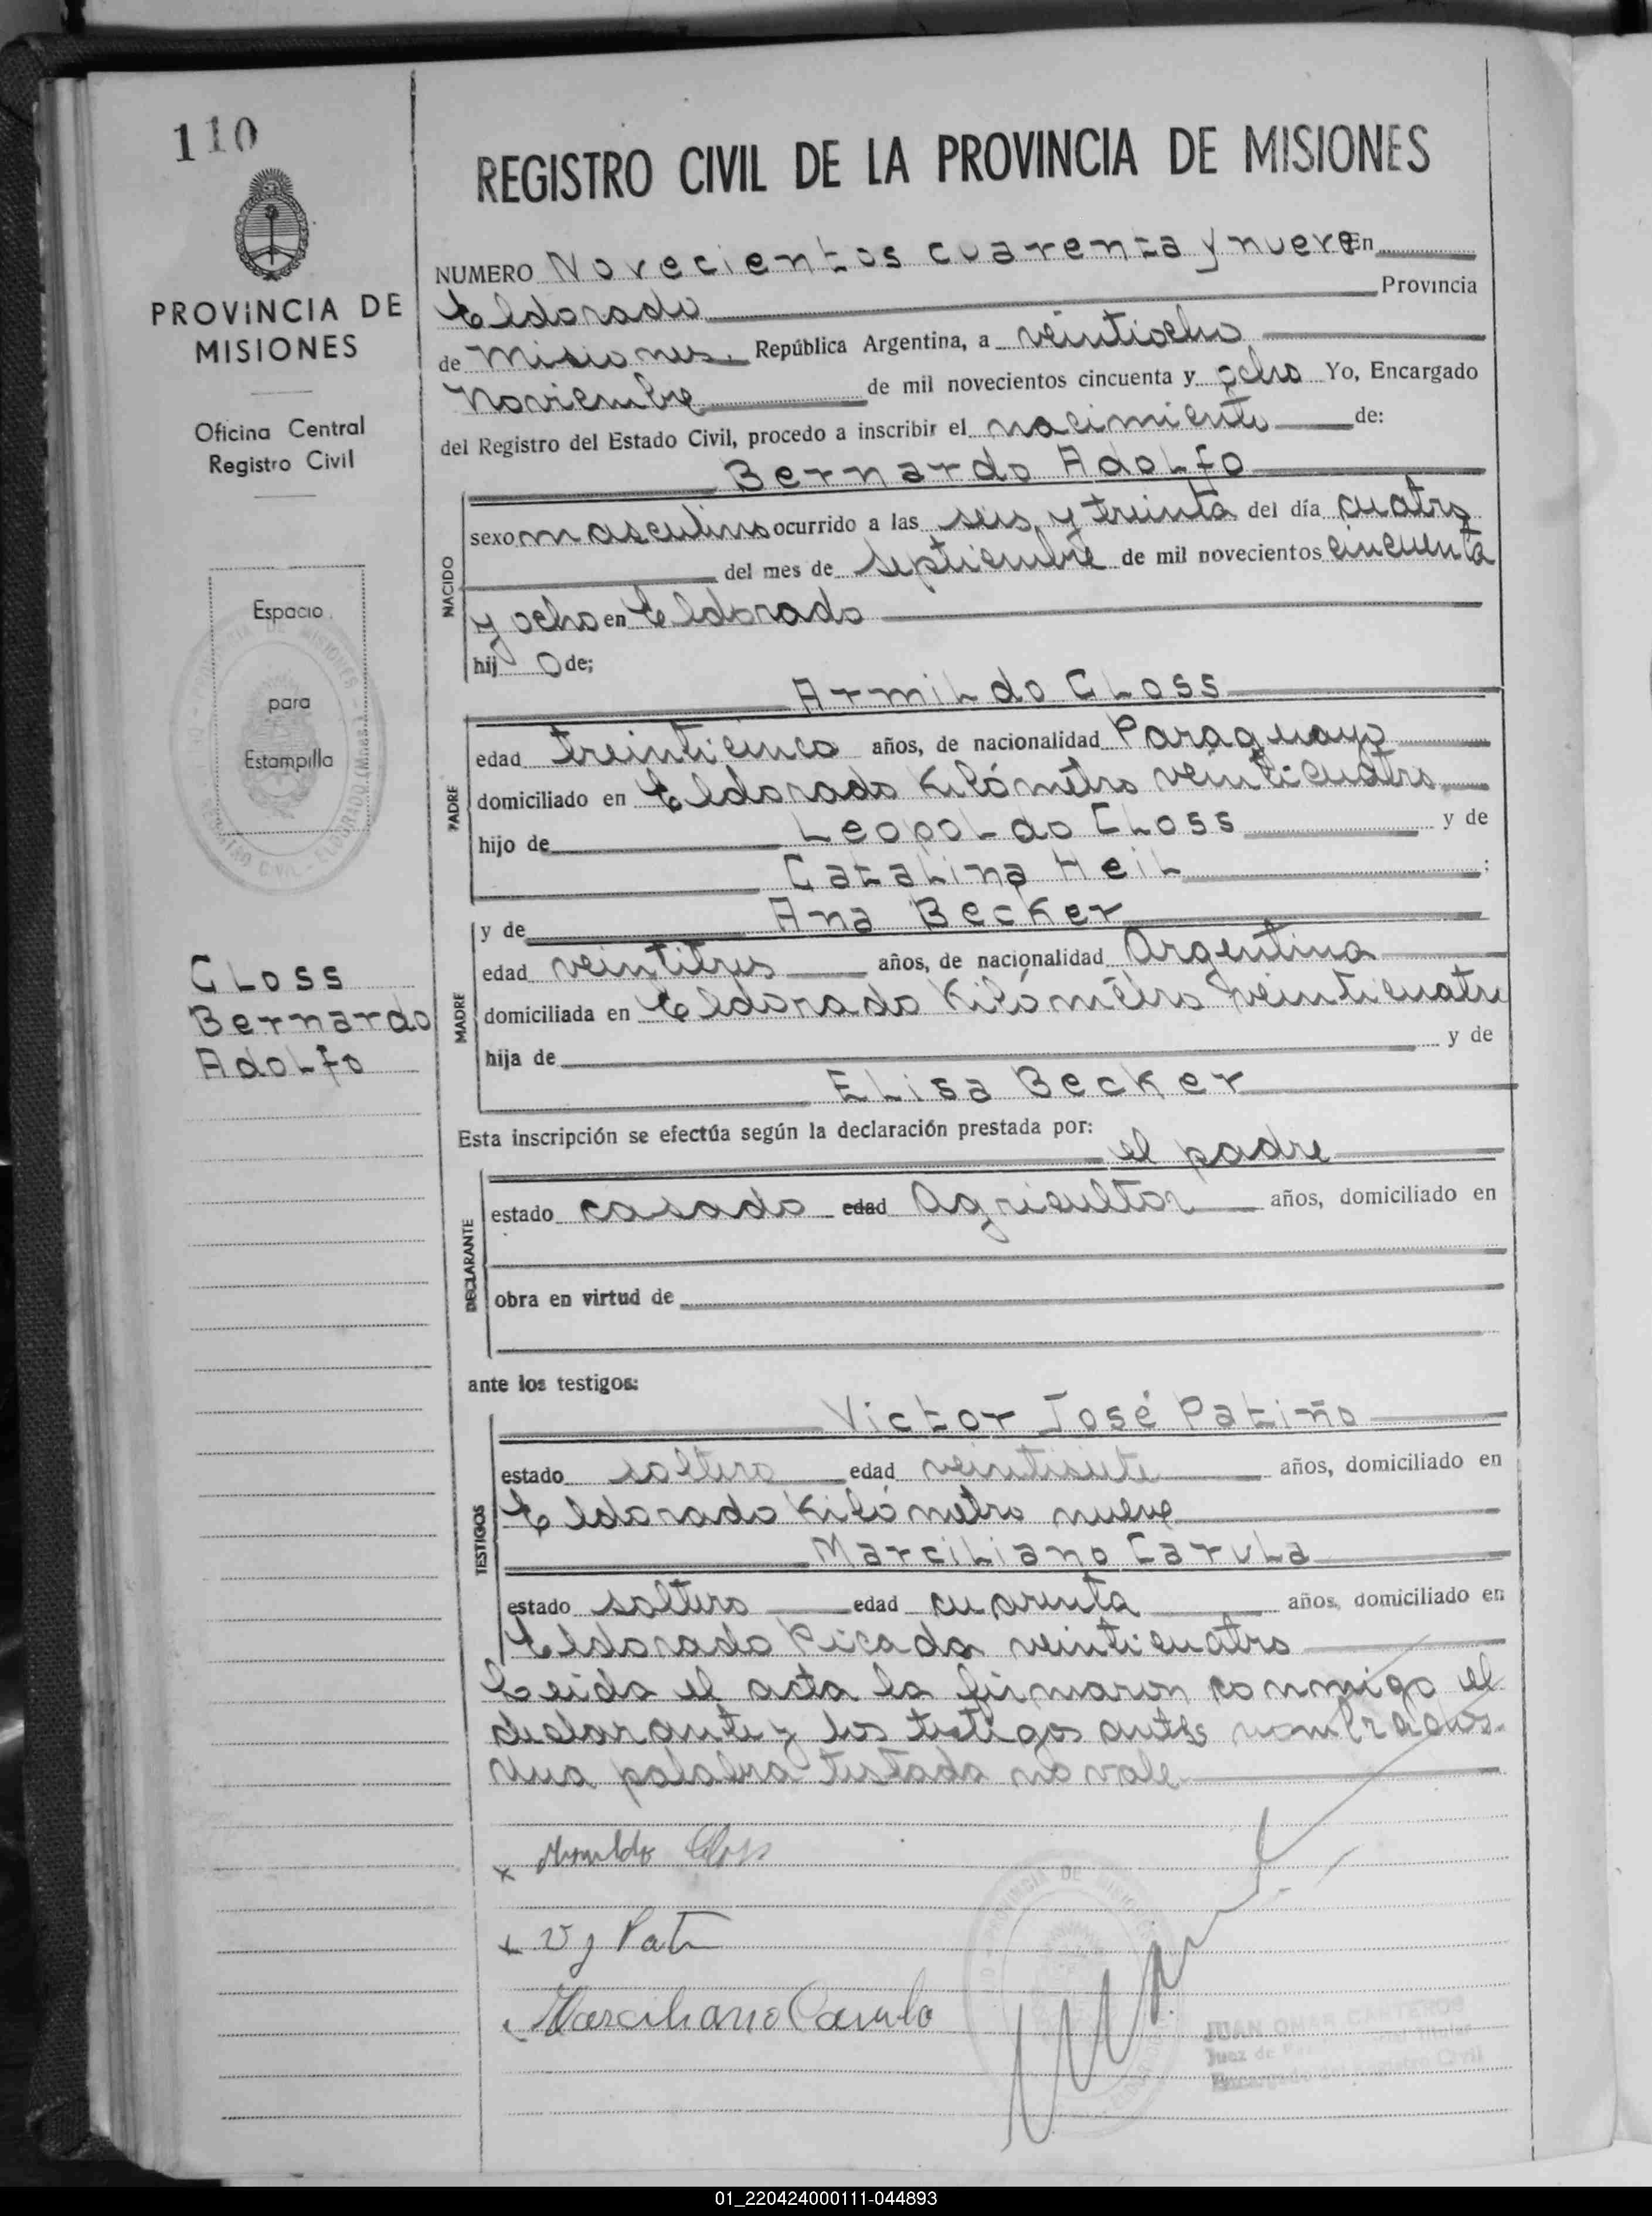 110
PROVINCIA DE
MISIONES
Oficina Central
Registro Civil
Espacio
para
Estampilla
Closs
Bernardo
Adolfo
REGISTRO CIVIL DE LA PROVINCIA DE MISIONES
NUMERO Novecientos cuarenta y nueve En
Eldorado Provincia
de Misiones. República Argentina, a veintiocho
Noviembre de mil novecientos cincuenta y ocho Yo, Encargado
del Registro del Estado Civil, procedo a inscribir el nacimiento de:
Bernardo Adolfo
NACIDO
sexo masculino ocurrido a las seis y treinta del día cuatro
del mes de septiembre de mil novecientos cincuenta
y ocho en Eldorado
hijo de;
Armildo Closs
PADRE
edad treinticinco años, de nacionalidad Paraguayo
domiciliado en Eldorado Kilómetro veinticuatro
hijo de Leopoldo Closs y de
Catalina Heil ;
y de Ana Becker
MADRE
edad veintitres años, de nacionalidad Argentina
domiciliada en Eldorado Kilómetro veinticuatro
hija de y de
Elisa Becker
Esta inscripción se efectúa según la declaración prestada por:
el padre
DECLARANTE
estado casado edad Agricultor años, domiciliado en
obra en virtud de
ante los testigos:
Victor José Patiño
TESTIGOS
estado soltero edad veintisiete años, domiciliado en
Eldorado Kilómetro nueve
Marciliano Carula
estado soltero edad cuarenta años, domiciliado en
Eldorado Picada veinticuatro
Leida el acta la firmaron conmigo el
declarante y los testigos antes nombrados.
Una palabra testada no vale
x Armildo Closs
x V J Pat
Marciliano Carula
JUAN OMAR CANTEROS
Juez de Paz Titular
Encargado del Registro Civil
01_220424000111-044893